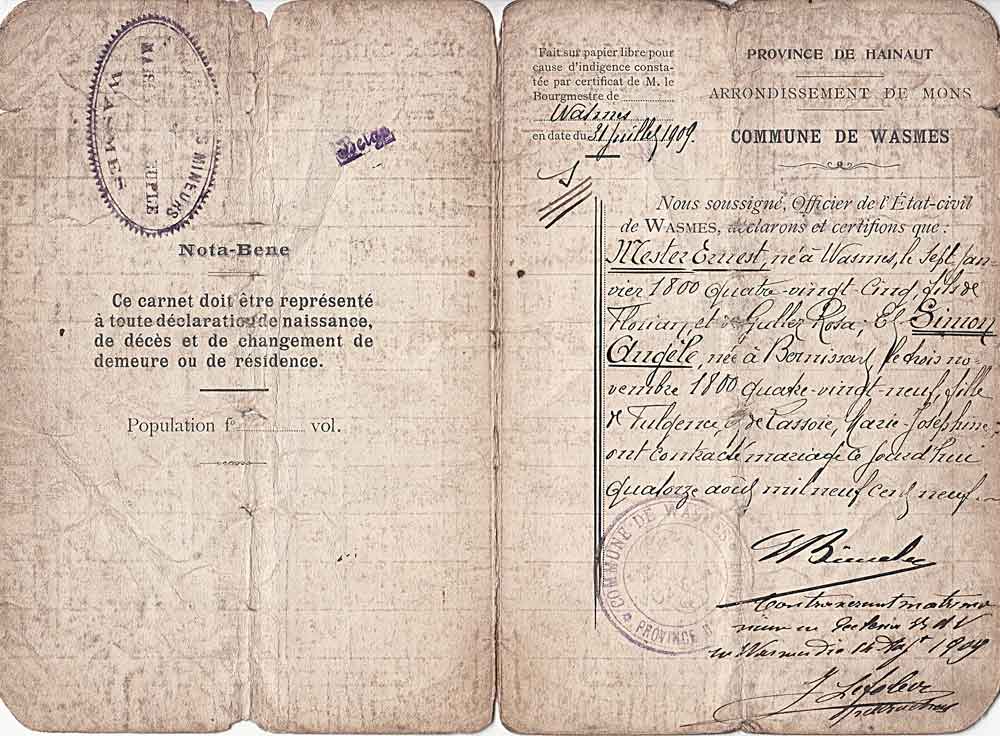 MINEURS
WASMES
Belge
Nota-Bene
Ce carnet doit être représenté
à toute déclaration de naissance,
de décès et de changement de
demeure ou de résidence.
Population f° vol.
Fait sur papier libre pour
cause d'indigence consta-
tée par certificat de M. le
Bourgmestre de
Wasmes
en date du 31 juillet 1909.
PROVINCE DE HAINAUT
ARRONDISSEMENT DE MONS
COMMUNE DE WASMES
Nous soussigné, Officier de l'État-civil
de WASMES, déclarons et certifions que :
Mester Ernest, né à Wasmes, le sept jan-
vier 1800 quatre-vingt-cinq, fils de
Florian, et de Gullez Rosa; Et Simon
Angèle, née à Bernissart, le trois no-
vembre 1800 quatre-vingt-neuf, fille
de Fulgence, & de Lassoie, Marie-Joséphine,
ont contracté mariage ce jourd'hui
quatorze août mil neuf cent neuf.
COMMUNE DE WASMES
PROVINCE
Contraxerunt matrimo
nium in
Wasmes die 14 1909